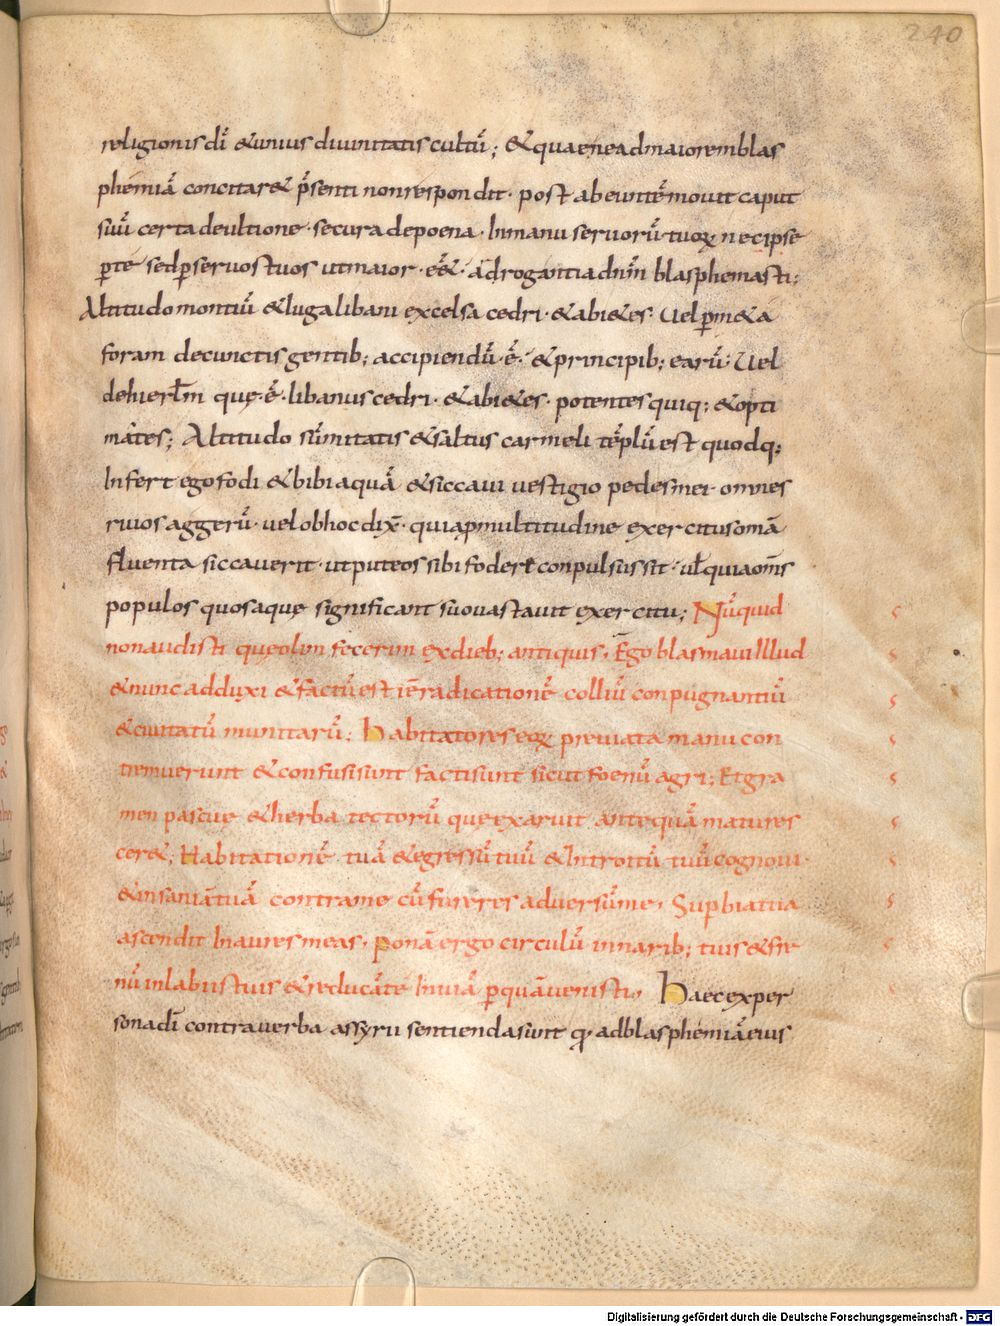 240
religionis dī &unius diuinitatis cultū; & quaeneadmaioremblas
phemiā concitar& p̄senti nonrespondit· post abeuntē mouit caput
suū certa deultione· secura depoena· Inmanu seruorū tuoꝝ necipse
p̱te sedp̱seruostuos utmaior· ēē&· adrogantia dnm̄ blasphemasti;
Altitudo montiū &iuga libani excelsa cedri· &abi&es· Uel p̱m&a
foram decunctis gentib; accipiendū·ē· &principib; earū· Uel
dehierl̄m que·ē· libanus cedri· &abi&es· potentes quiq; &opti
mates; Altitudo sūmitatis &saltus carmeli tēplū est quodq;
Infert ego fodi &bibi aquā &siccaui uestigio pedesmei· omnes
riuos aggerū· uel obhoc dix̄· quiap̱multitudine exercitus omā
fluenta siccauerit· utputeos sibi foder& conpulsus sit· ul̄ quia om̄s
populos quos aquę significant suouastauit exercitu; Nūquid
nonaudisti quęolim fecerim exdieb; antiquis· Ego blasmaui Illud
&nunc adduxi &factū est īeradicationē colliū conpugnantiū
&ciuitatū munitarū; Habitatores eoꝝ preuiata manu con
tremuerunt &confusi sunt facti sunt sicut foenū agri; Et gra
men pascue &herba tectorū queexaruit antequā matures
cer&; Habitationē tuā &egressū tuū &Introitū tuū cognoui·
&insaniā tuā contrame cū fureres aduersū me· Supbia tua
ascendit Inaures meas· ponā ergo circulū innarib; tuis &fre
nū inlabiis tuis &reducāte Inuiā p̱quā uenisti· Haec exper
sona dī contrauerba assyrii sentienda sunt qꝫ adblasphemiā eius
Digitalisierung gefördert durch die Deutsche Forschungsgemeinschaft - DFG